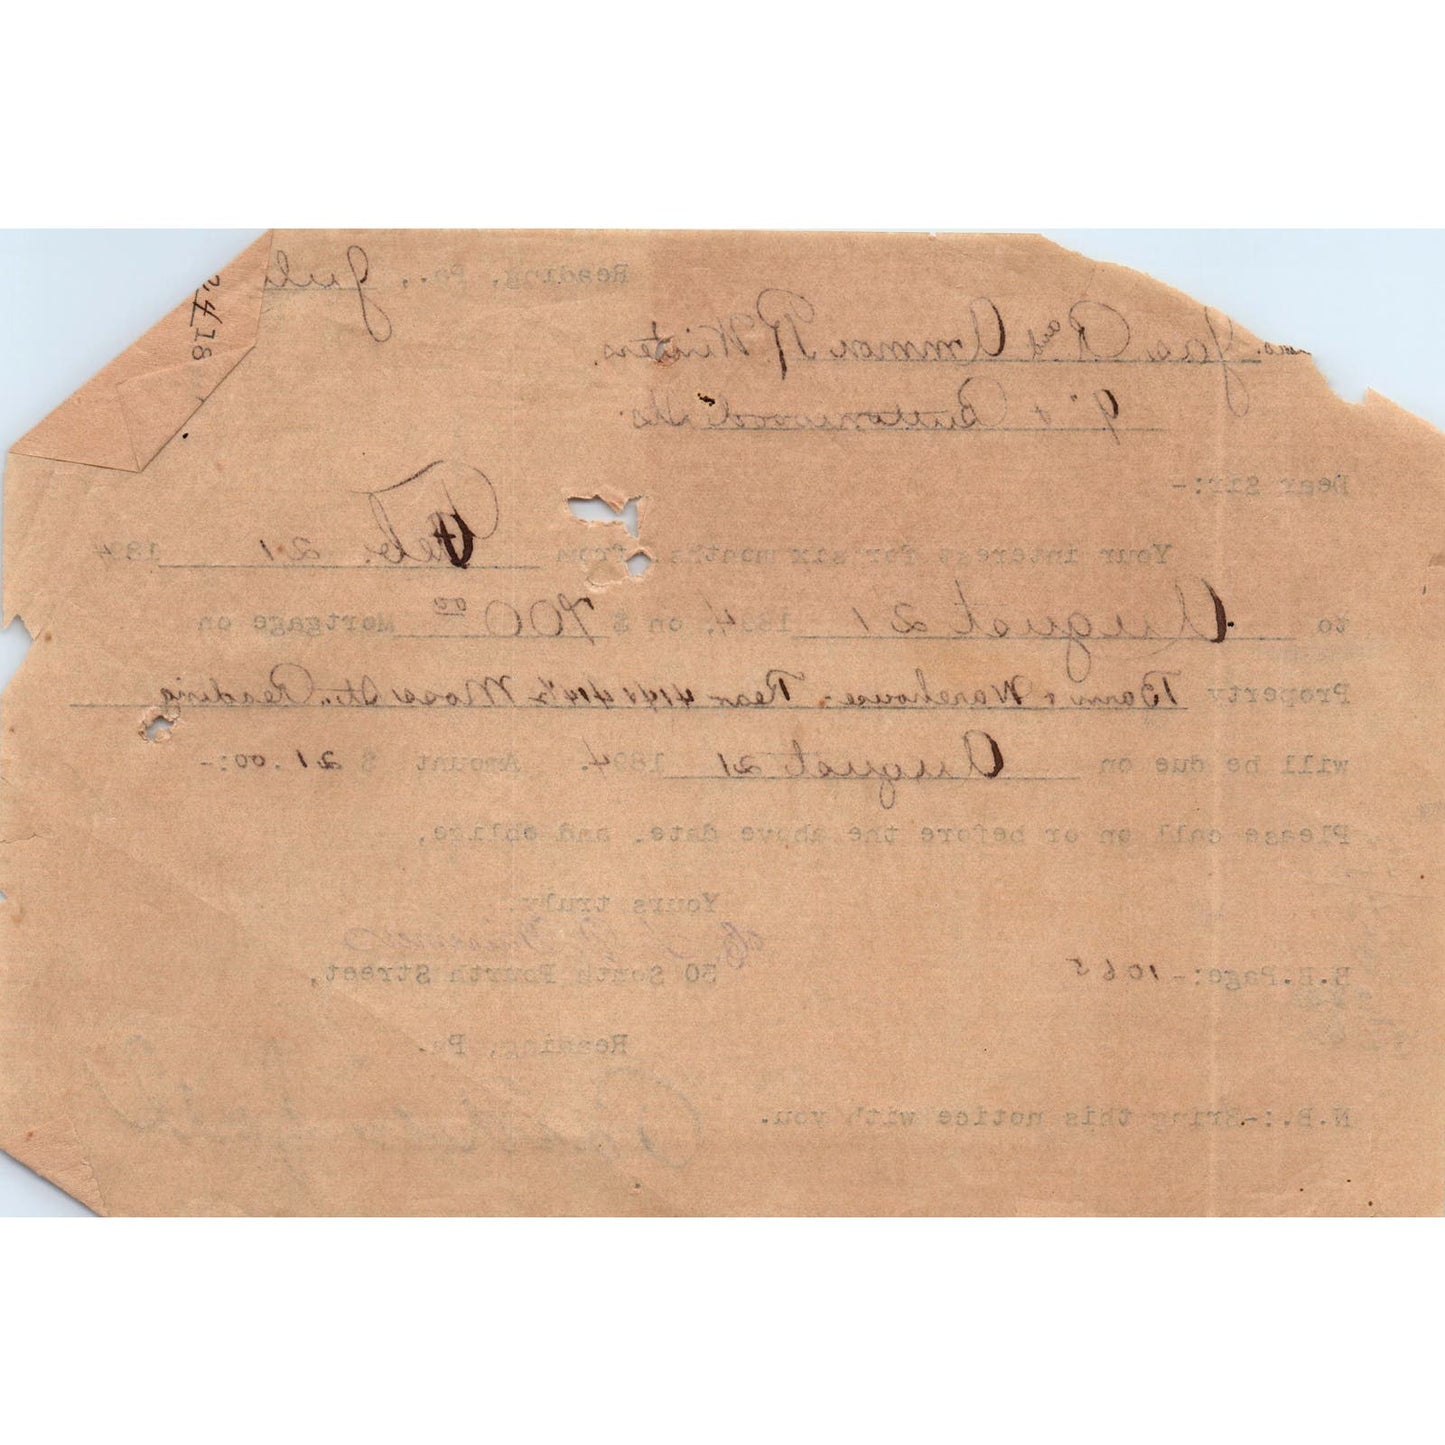 Reading, Pa., July
24/18
Jas. C. R. and Ammon R. Winters.
9" + Buttonwood Sts.
Dear Sir:-
Your interest for six months, from Feb. 21 1894
to August 21 1894, on $ 700 00 Mortgage on
Property Barn & Warehouse, Rear 414 & 414½ Moss St., Reading
will be due on August 21 1894. Amount $ 21.00:-
Please call on or before the above date, and oblige,
Yours truly,
B.B.Page:-1065 30 South Fourth Street,
Reading, Pa.
N.B.:-Bring this notice with you.